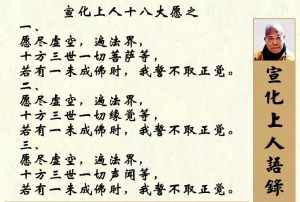 宣化上人十八大愿之
一、
愿尽虚空，遍法界，
十方三世一切菩萨等，
若有一未成佛时，我誓不取正觉。
二、
愿尽虚空，遍法界，
十方三世一切缘觉等，
若有一未成佛时，我誓不取正觉。
三、
愿尽虚空，遍法界，
十方三世一切声闻等，
若有一未成佛时，我誓不取正觉。
宣化上人語錄